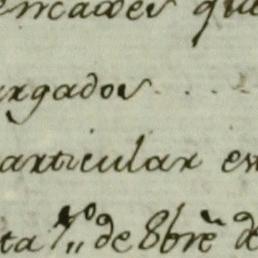 encaxes qu
argados . . .
articular en
ta 1.º de 8bre de